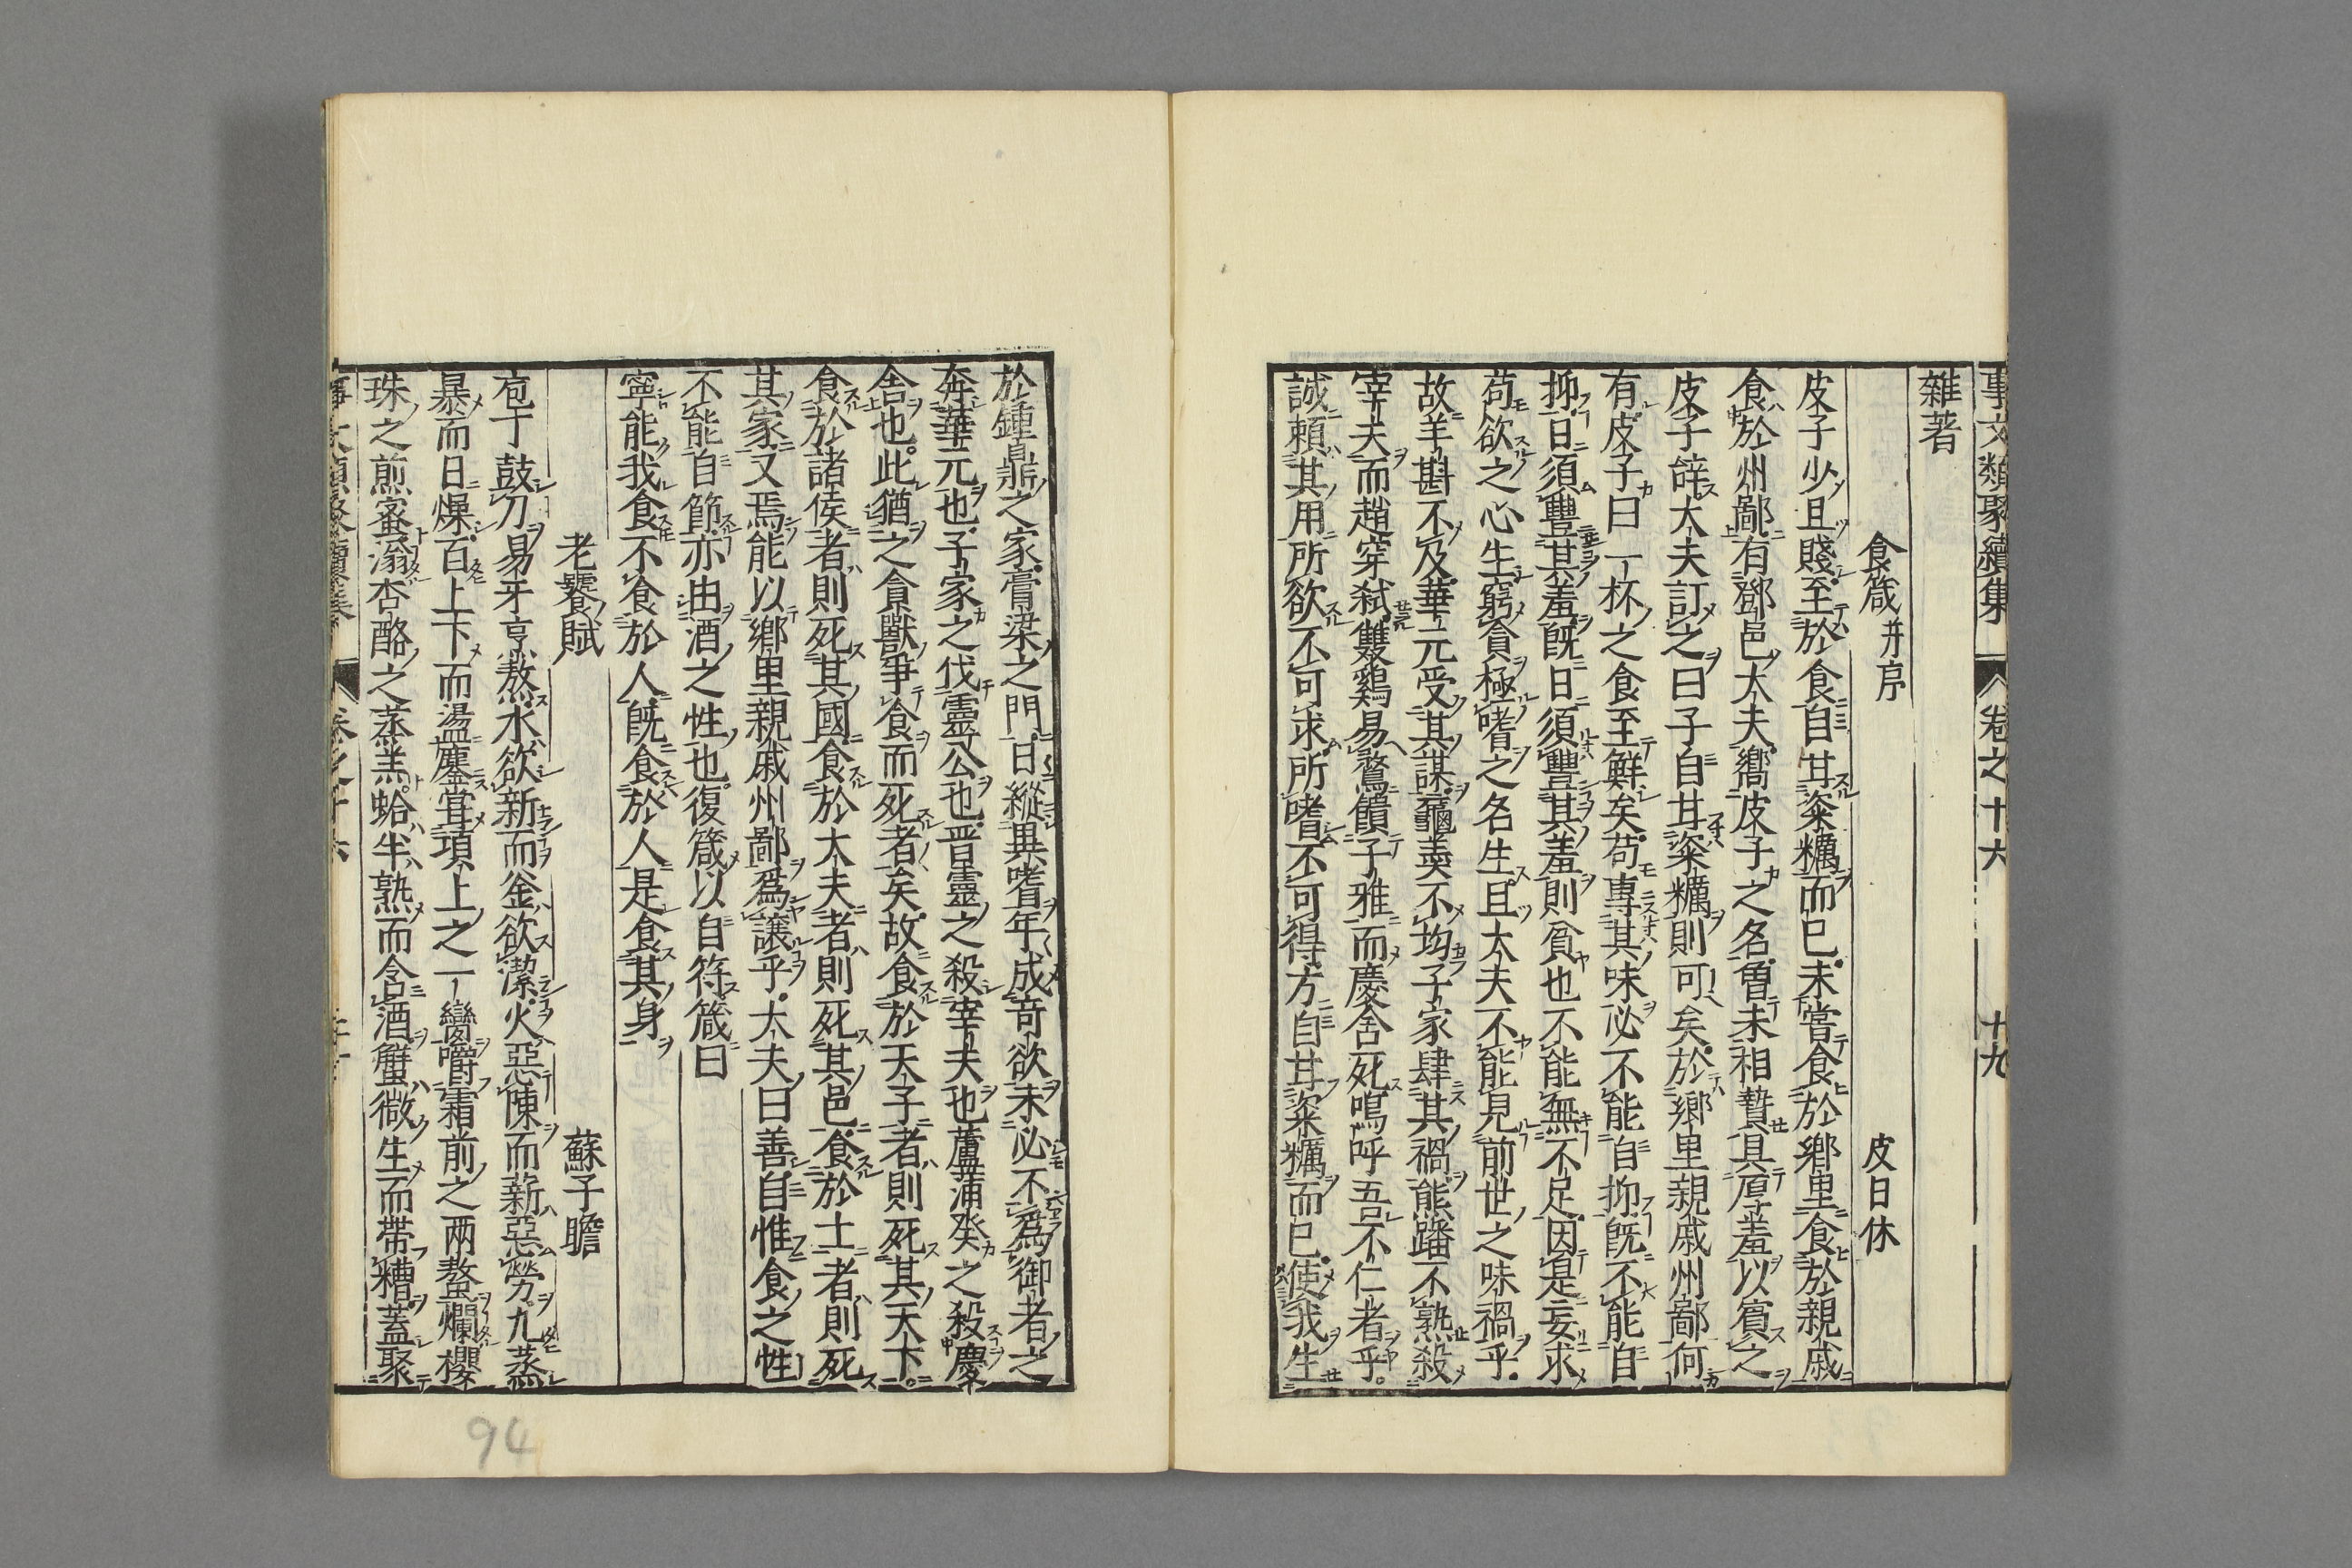 事文類聚續集 卷之十六 十九
雜著
食箴并序 皮日休
皮子少且賤至於食自甘粢糲而已未嘗食於鄉里食於親戚
食於州鄙有鄧邑大夫嚮皮子之名曾未相贄具厚羞以賓之
皮子辝大夫訂之曰子自甘粢糲則可矣於鄉里親戚州鄙何
有皮子曰一杯之食至鮮矣苟專其味必不能自抑旣不能自
抑日須豐其羞旣日須豐其羞則貧也不能無不足因是妄求
苟欲之心生窮貪極嗜之名生且大夫不能見前世之味禍乎
故羊斟不及華元受其謀黿羹不均子家肆其禍熊蹯不熟殺
宰夫而趙穿弑雙鷄易鶩饋子雅而慶舍死嗚呼吾不仁者乎
誠頼其用所欲不可求所嗜不可得方自甘粢糲而已使我生
於鍾鼎之家膏梁之門日縱異嗜年成竒欲未必不爲御者之
奔華元也子家之伐靈公也晋靈之殺宰夫也蘆蒲癸之殺慶
舍也此猶之貪獸爭食而死者矣故食於天子者則死其天下
食於諸侯者則死其國食於大夫者則死其邑食於士者則死
其家又焉能以鄉里親戚州鄙爲讓乎大夫曰善自惟食之性
不能自節亦由酒之性也復箴以自符箴曰
寧能我食不食於人旣食於人是食其身
老饕賦 蘇子瞻
庖丁鼓刀易牙烹熬水欲新而釜欲潔火惡陳而薪惡勞九蒸
暴而日燥百上下而湯鏖甞項上之一臠嚼霜前之兩螯爛櫻
珠之煎蜜滃杏酪之蒸羔蛤半熟而含酒蟹微生而帶糟蓋聚